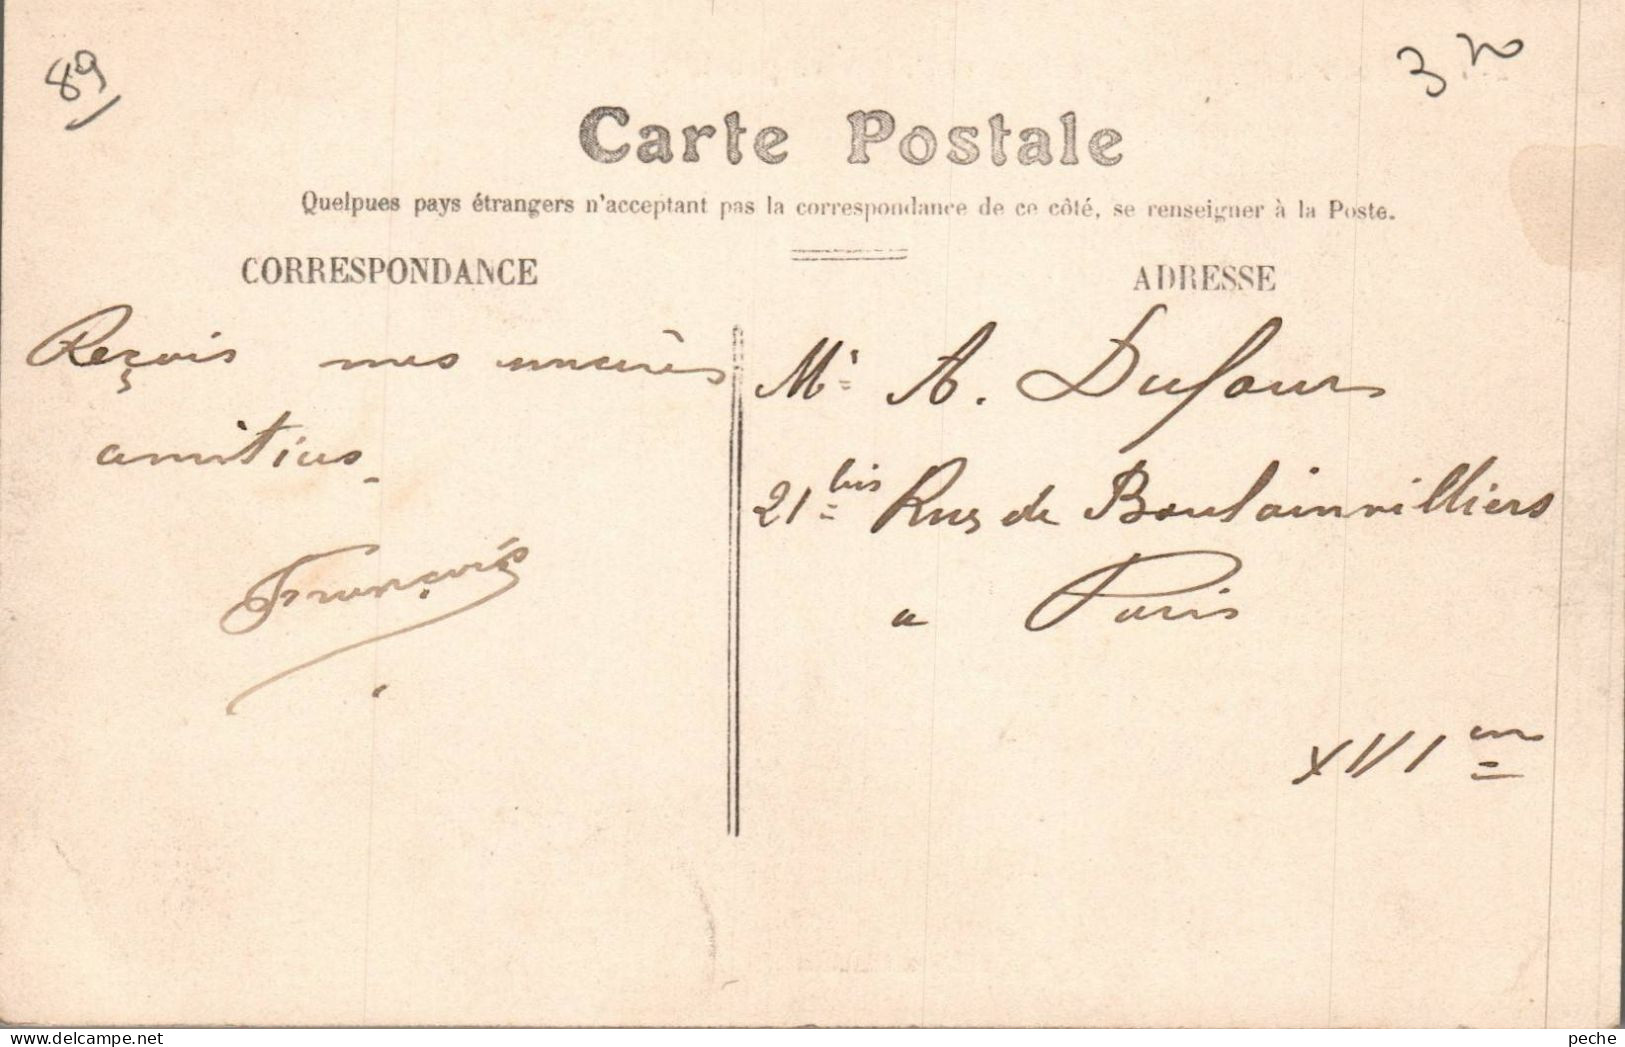 89
3
Carte Postale
Quelques pays étrangers n'acceptant pas la correspondance de ce côté, se renseigner à la Poste.
CORRESPONDANCE
Reçois mes sincères
amitiés
François
ADRESSE
Mr A. Dufour
21 bis Rue de Boulainvilliers
a Paris
XVI em
www.delcampe.net
peche